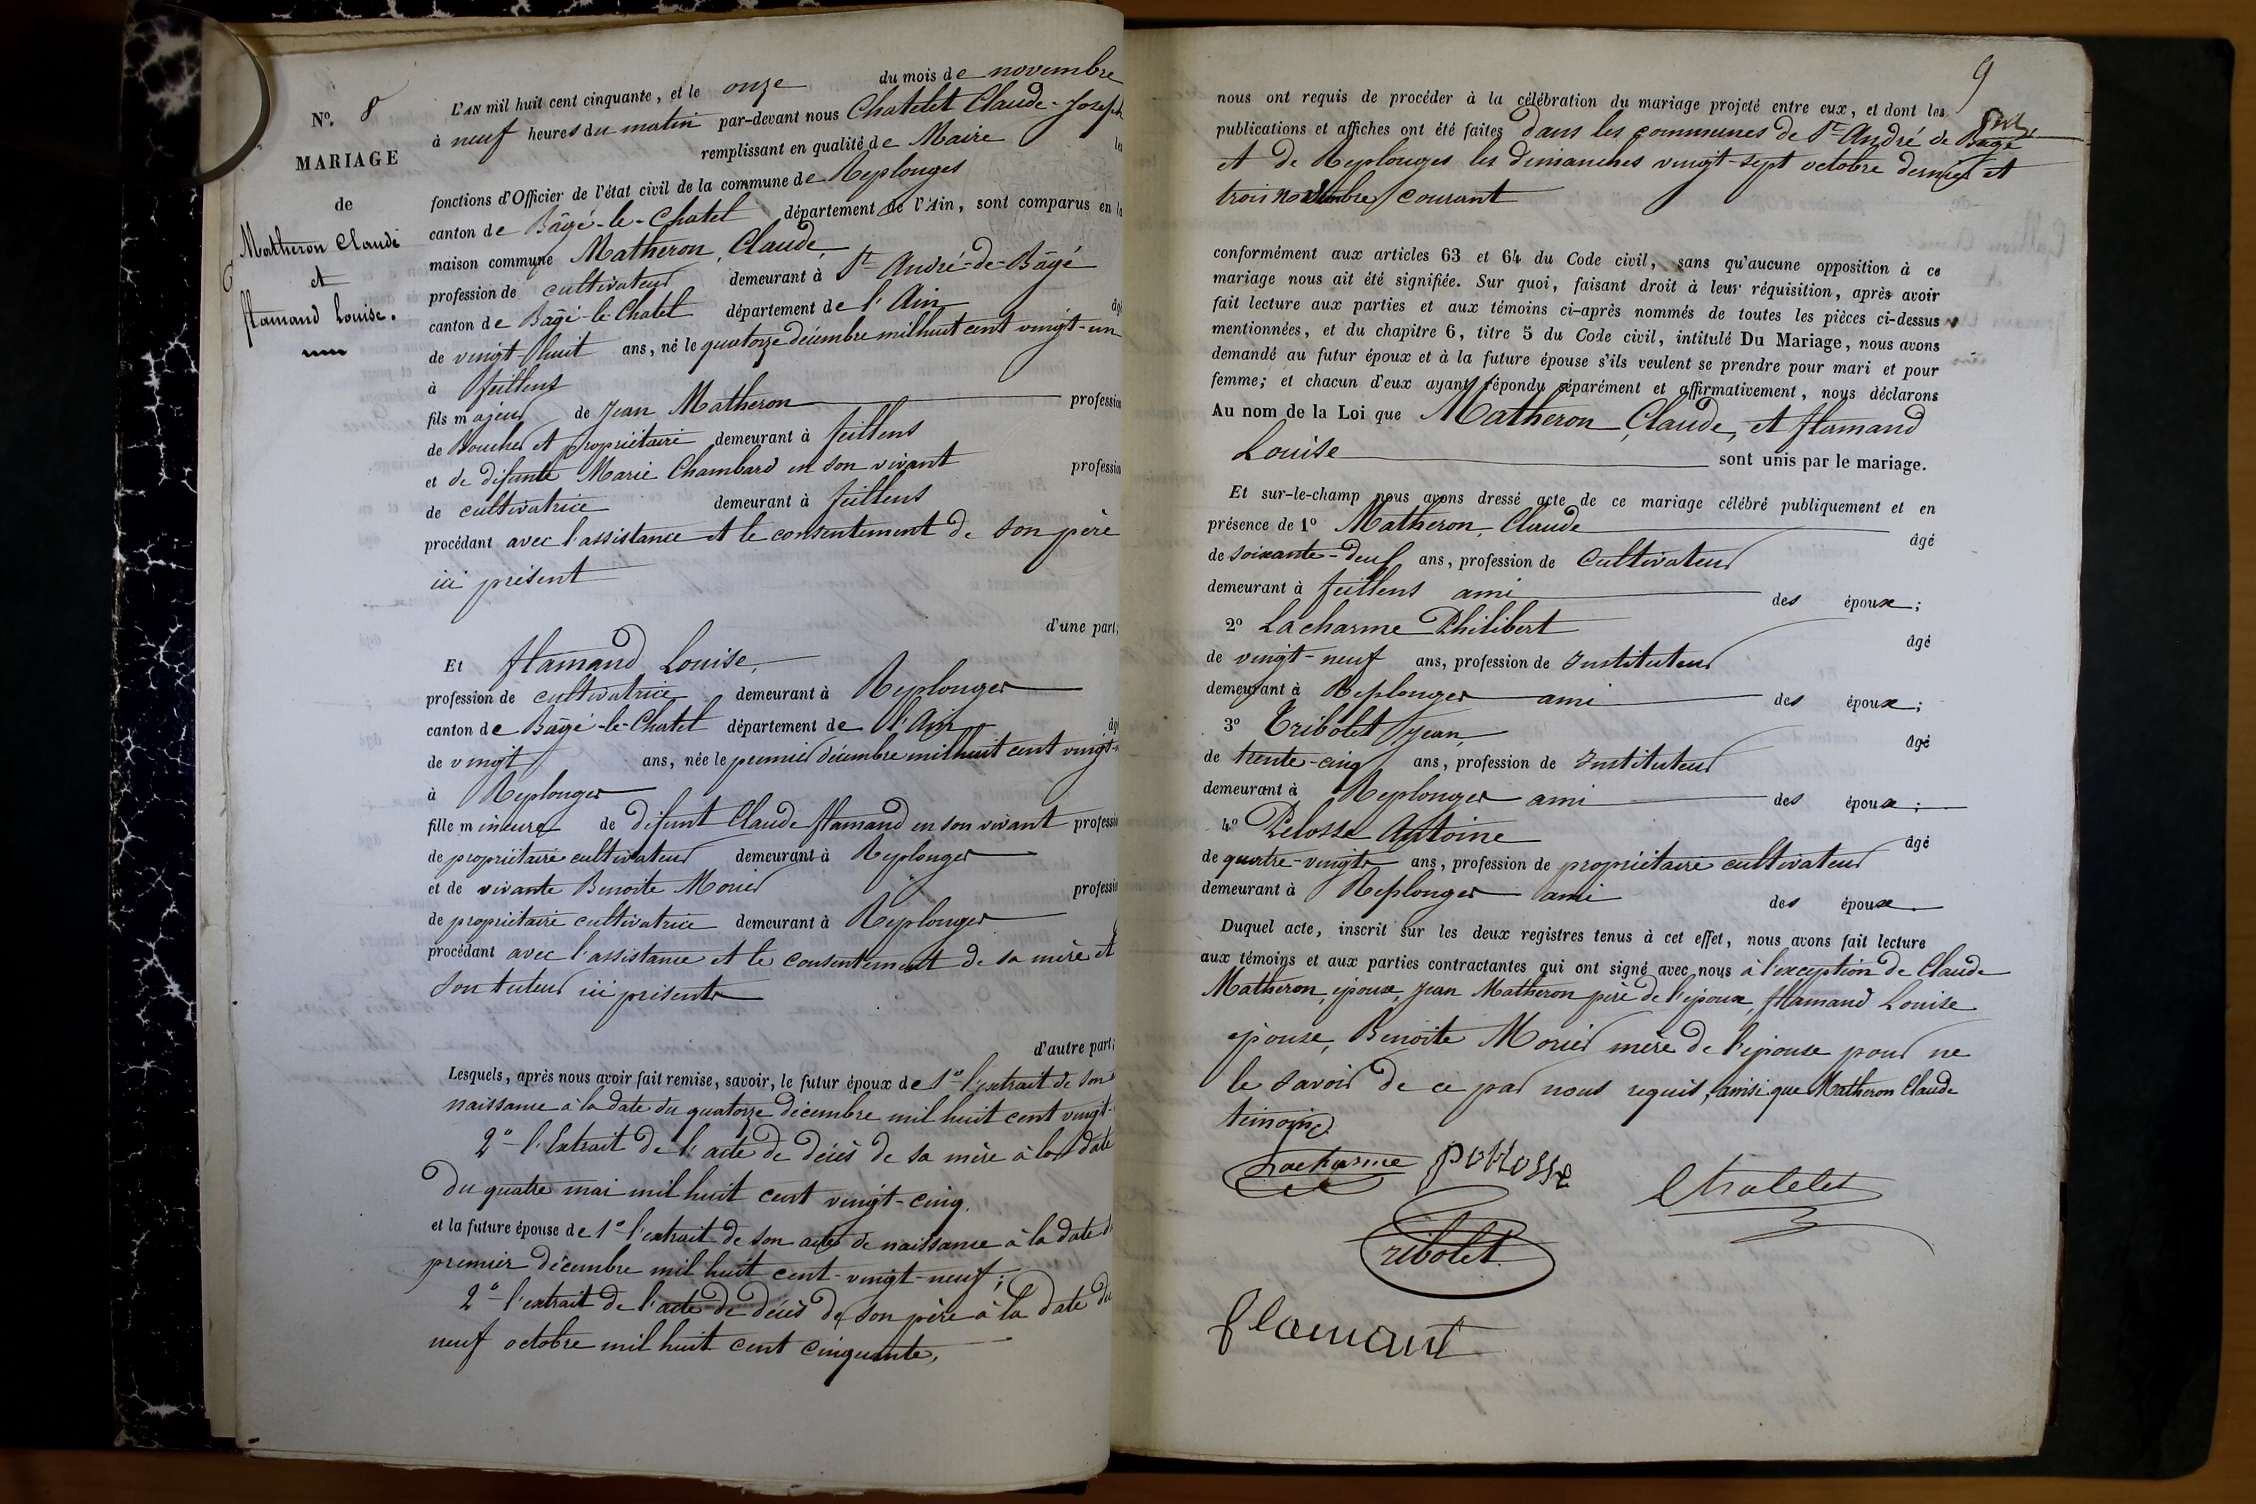 N°. 8
MARIAGE
de
Matheron Claude
et
flamand Louise.
L'AN mil huit cent cinquante, et le onze du mois de novembre
à neuf heures du matin par-devant nous Chatelet Claude-Joseph
remplissant en qualité de Maire les
fonctions d'Officier de l'état civil de la commune de Replonges
canton de Bâgé-le-Chatel département de l'Ain, sont comparus en la
maison commune Matheron, Claude,
profession de cultivateur demeurant à St André-de-Bâgé
canton de Bâgé-le-Chatel département de l'Ain âgé
de vingt huit ans, né le quatorze décembre mil huit cent vingt-un
à feillens
fils majeur de Jean Matheron profession
de Boucher et propriétaire demeurant à feillens
et de défunte Marie Chambard en son vivant profession
de cultivatrice demeurant à feillens
procédant avec l'assistance et le consentement de son père
ici présent
d'une part;
Et flamand Louise,
profession de cultivatrice demeurant à Replonges
canton de Bâgé-le-Chatel département de l'Ain âgé
de vingt ans, née le premier décembre mil huit cent vingt-
à Replonges
fille mineure de défunt Claude flamand en son vivant profession
de propriétaire cultivateur demeurant à Replonges
et de vivante Benoite Morier profession
de propriétaire cultivatrice demeurant à Replonges
procédant avec l'assistance et le consentement de sa mère et
son tuteur ici présents
d'autre part;
Lesquels, après nous avoir fait remise, savoir, le futur époux de 1° l'extrait de son
naissance à la date du quatorze décembre mil huit cent vingt-
2° l'Extrait de l'acte de décès de sa mère à la date
du quatre mai mil huit cent vingt-cinq.
et la future épouse de 1° l'extrait de son acte de naissance à la date du
premier décembre mil huit cent-vingt-neuf;
2° l'extrait de l'acte de décès de son père à la date du
neuf octobre mil huit cent cinquante,
9
nous ont requis de procéder à la célébration du mariage projeté entre eux, et dont les
publications et affiches ont été faites dans les communes de St André de Bâgé
et de Replonges les dimanches vingt-sept octobre dernier et
trois novembre courant
conformément aux articles 63 et 64 du Code civil, sans qu'aucune opposition à ce
mariage nous ait été signifiée. Sur quoi, faisant droit à leur réquisition, après avoir
fait lecture aux parties et aux témoins ci-après nommés de toutes les pièces ci-dessus
mentionnées, et du chapitre 6, titre 5 du Code civil, intitulé Du Mariage, nous avons
demandé au futur époux et à la future épouse s'ils veulent se prendre pour mari et pour
femme; et chacun d'eux ayant répondu séparément et affirmativement, nous déclarons
Au nom de la Loi que Matheron, Claude, et flamand
Louise sont unis par le mariage.
Et sur-le-champ nous avons dressé acte de ce mariage célébré publiquement et en
présence de 1° Matheron, Claude âgé
de soixante-deux ans, profession de Cultivateur
demeurant à feillens ami des époux;
2° Lacharme Philibert âgé
de vingt-neuf ans, profession de Instituteur
demeurant à Replonges ami des époux;
3° Tribolet Jean, âgé
de trente-cinq ans, profession de Instituteur
demeurant à Replonges ami des époux;
4° Pelosse Antoine âgé
de quatre-vingts ans, profession de propriétaire cultivateur
demeurant à Replonges ami des époux
Duquel acte, inscrit sur les deux registres tenus à cet effet, nous avons fait lecture
aux témoins et aux parties contractantes qui ont signé avec nous à l'exception de Claude
Matheron, époux, Jean Matheron père de l'époux, flamand Louise
épouse, Benoite Morier mère de l'épouse pour ne
le savoir de ce par nous requis, ainsi que Matheron Claude
témoin.
Lacharme peLosse Chatelet
Tribolet
flamant